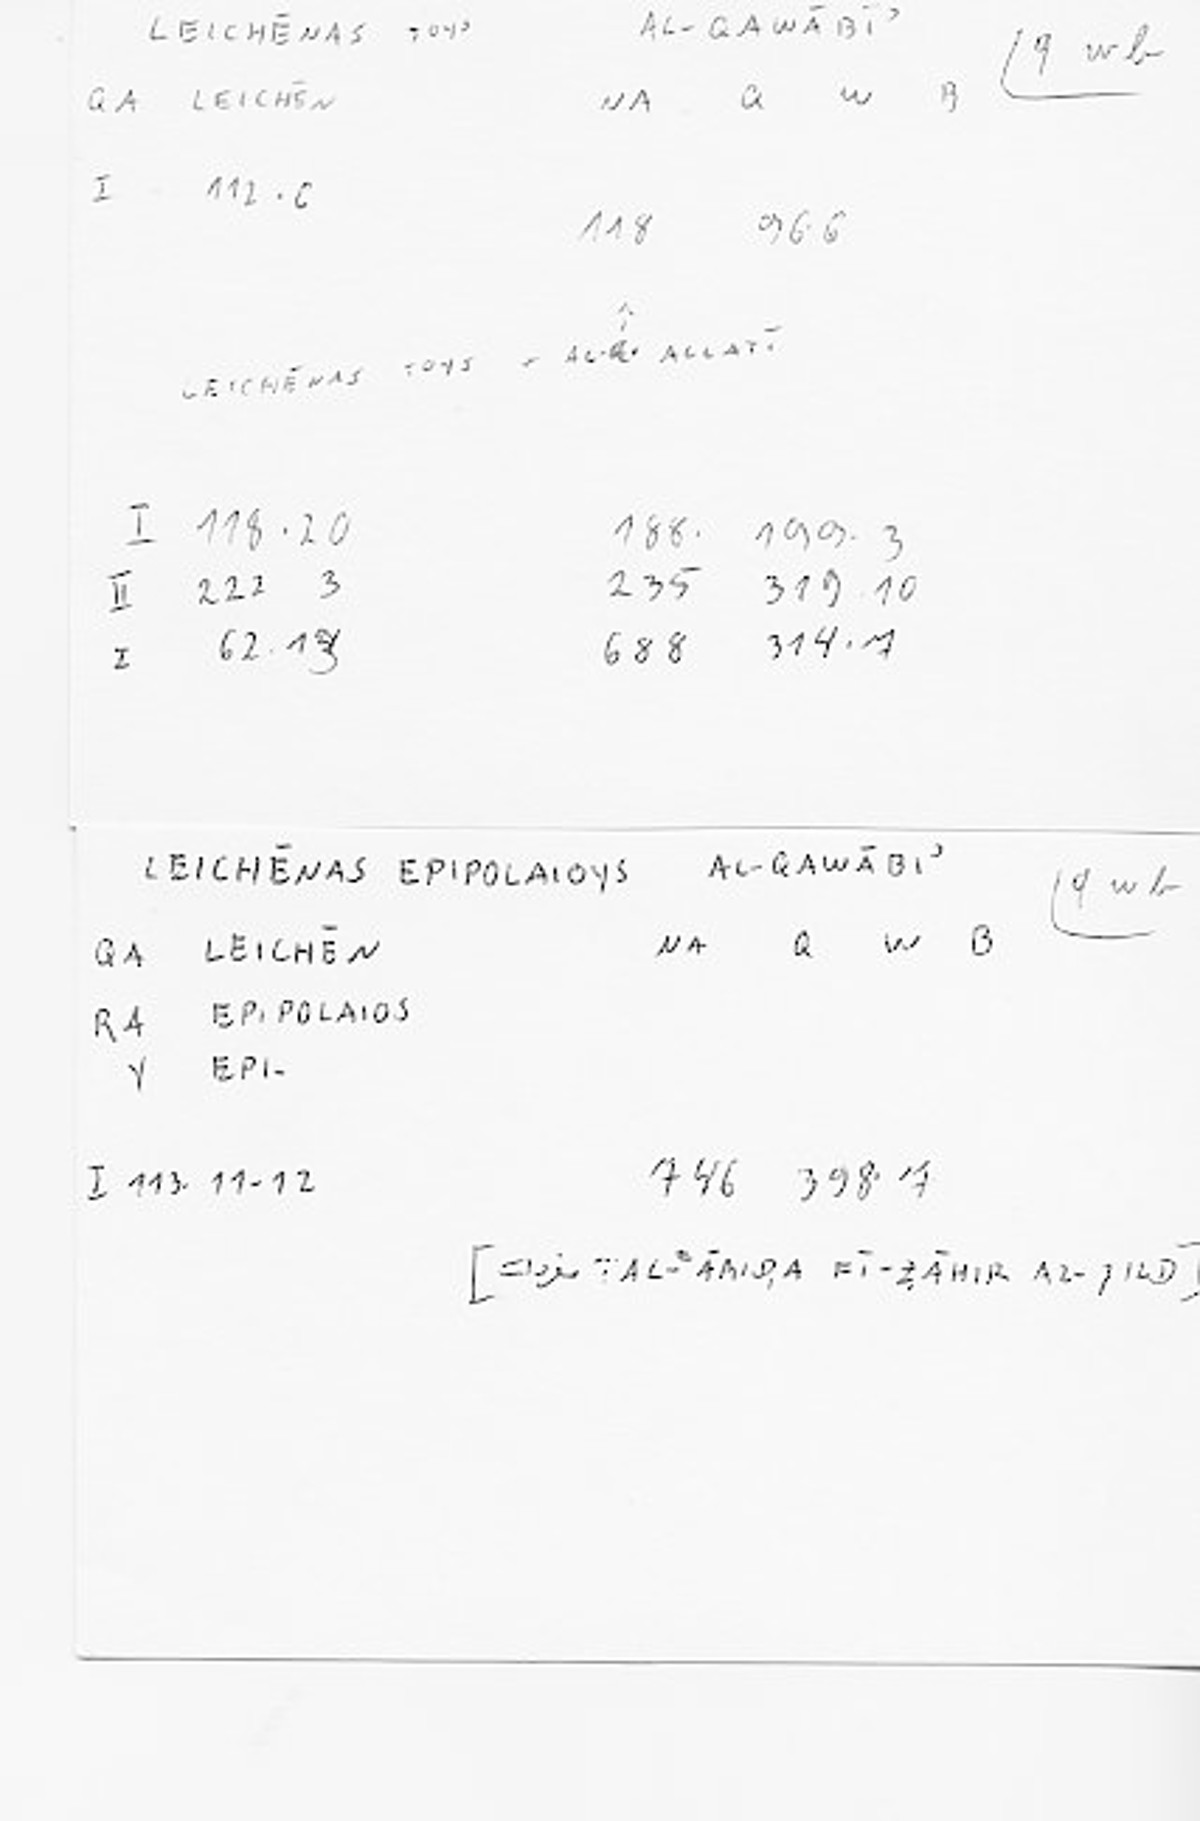 LEICHĒNAS TOYS AL-QAWĀBĪʾ q wb
QA LEICHĒN NA Q W B
I 112.6
118 966
LEICHĒNAS TOYS - AL-Q. ALLATĪ
I 118.20 188. 199.3
II 222 3 235 319.10
I 62.13 688 314.7
LEICHĒNAS EPIPOLAIOYS AL-QAWĀBĪʾ q wb
QA LEICHĒN NA Q W B
RA EPIPOLAIOS
Y EPI-
I 113. 11-12 746 398.7
FĪ-ẒĀHIR AL-ǧILD]